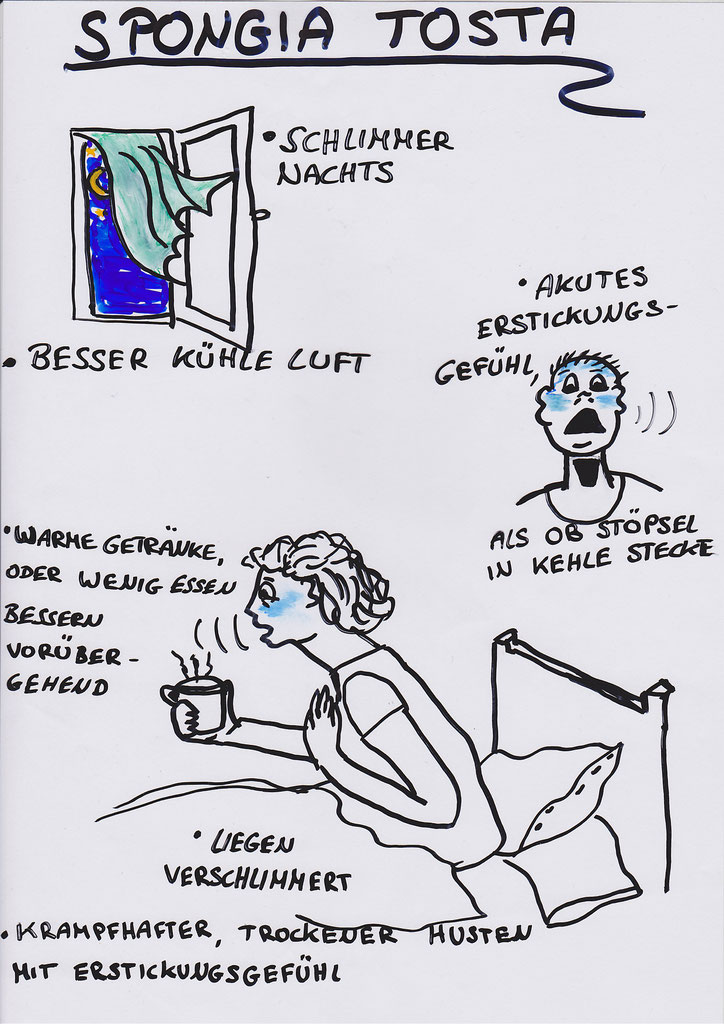 SPONGIA TOSTA
• SCHLIMMER
NACHTS
• BESSER KÜHLE LUFT
• AKUTES
ERSTICKUNGS-
GEFÜHL,
ALS OB STÖPSEL
IN KEHLE STECKE
• WARME GETRÄNKE,
ODER WENIG ESSEN
BESSERN
VORÜBER-
GEHEND
• LIEGEN
VERSCHLIMMERT
• KRAMPFHAFTER, TROCKENER HUSTEN
MIT ERSTICKUNGSGEFÜHL